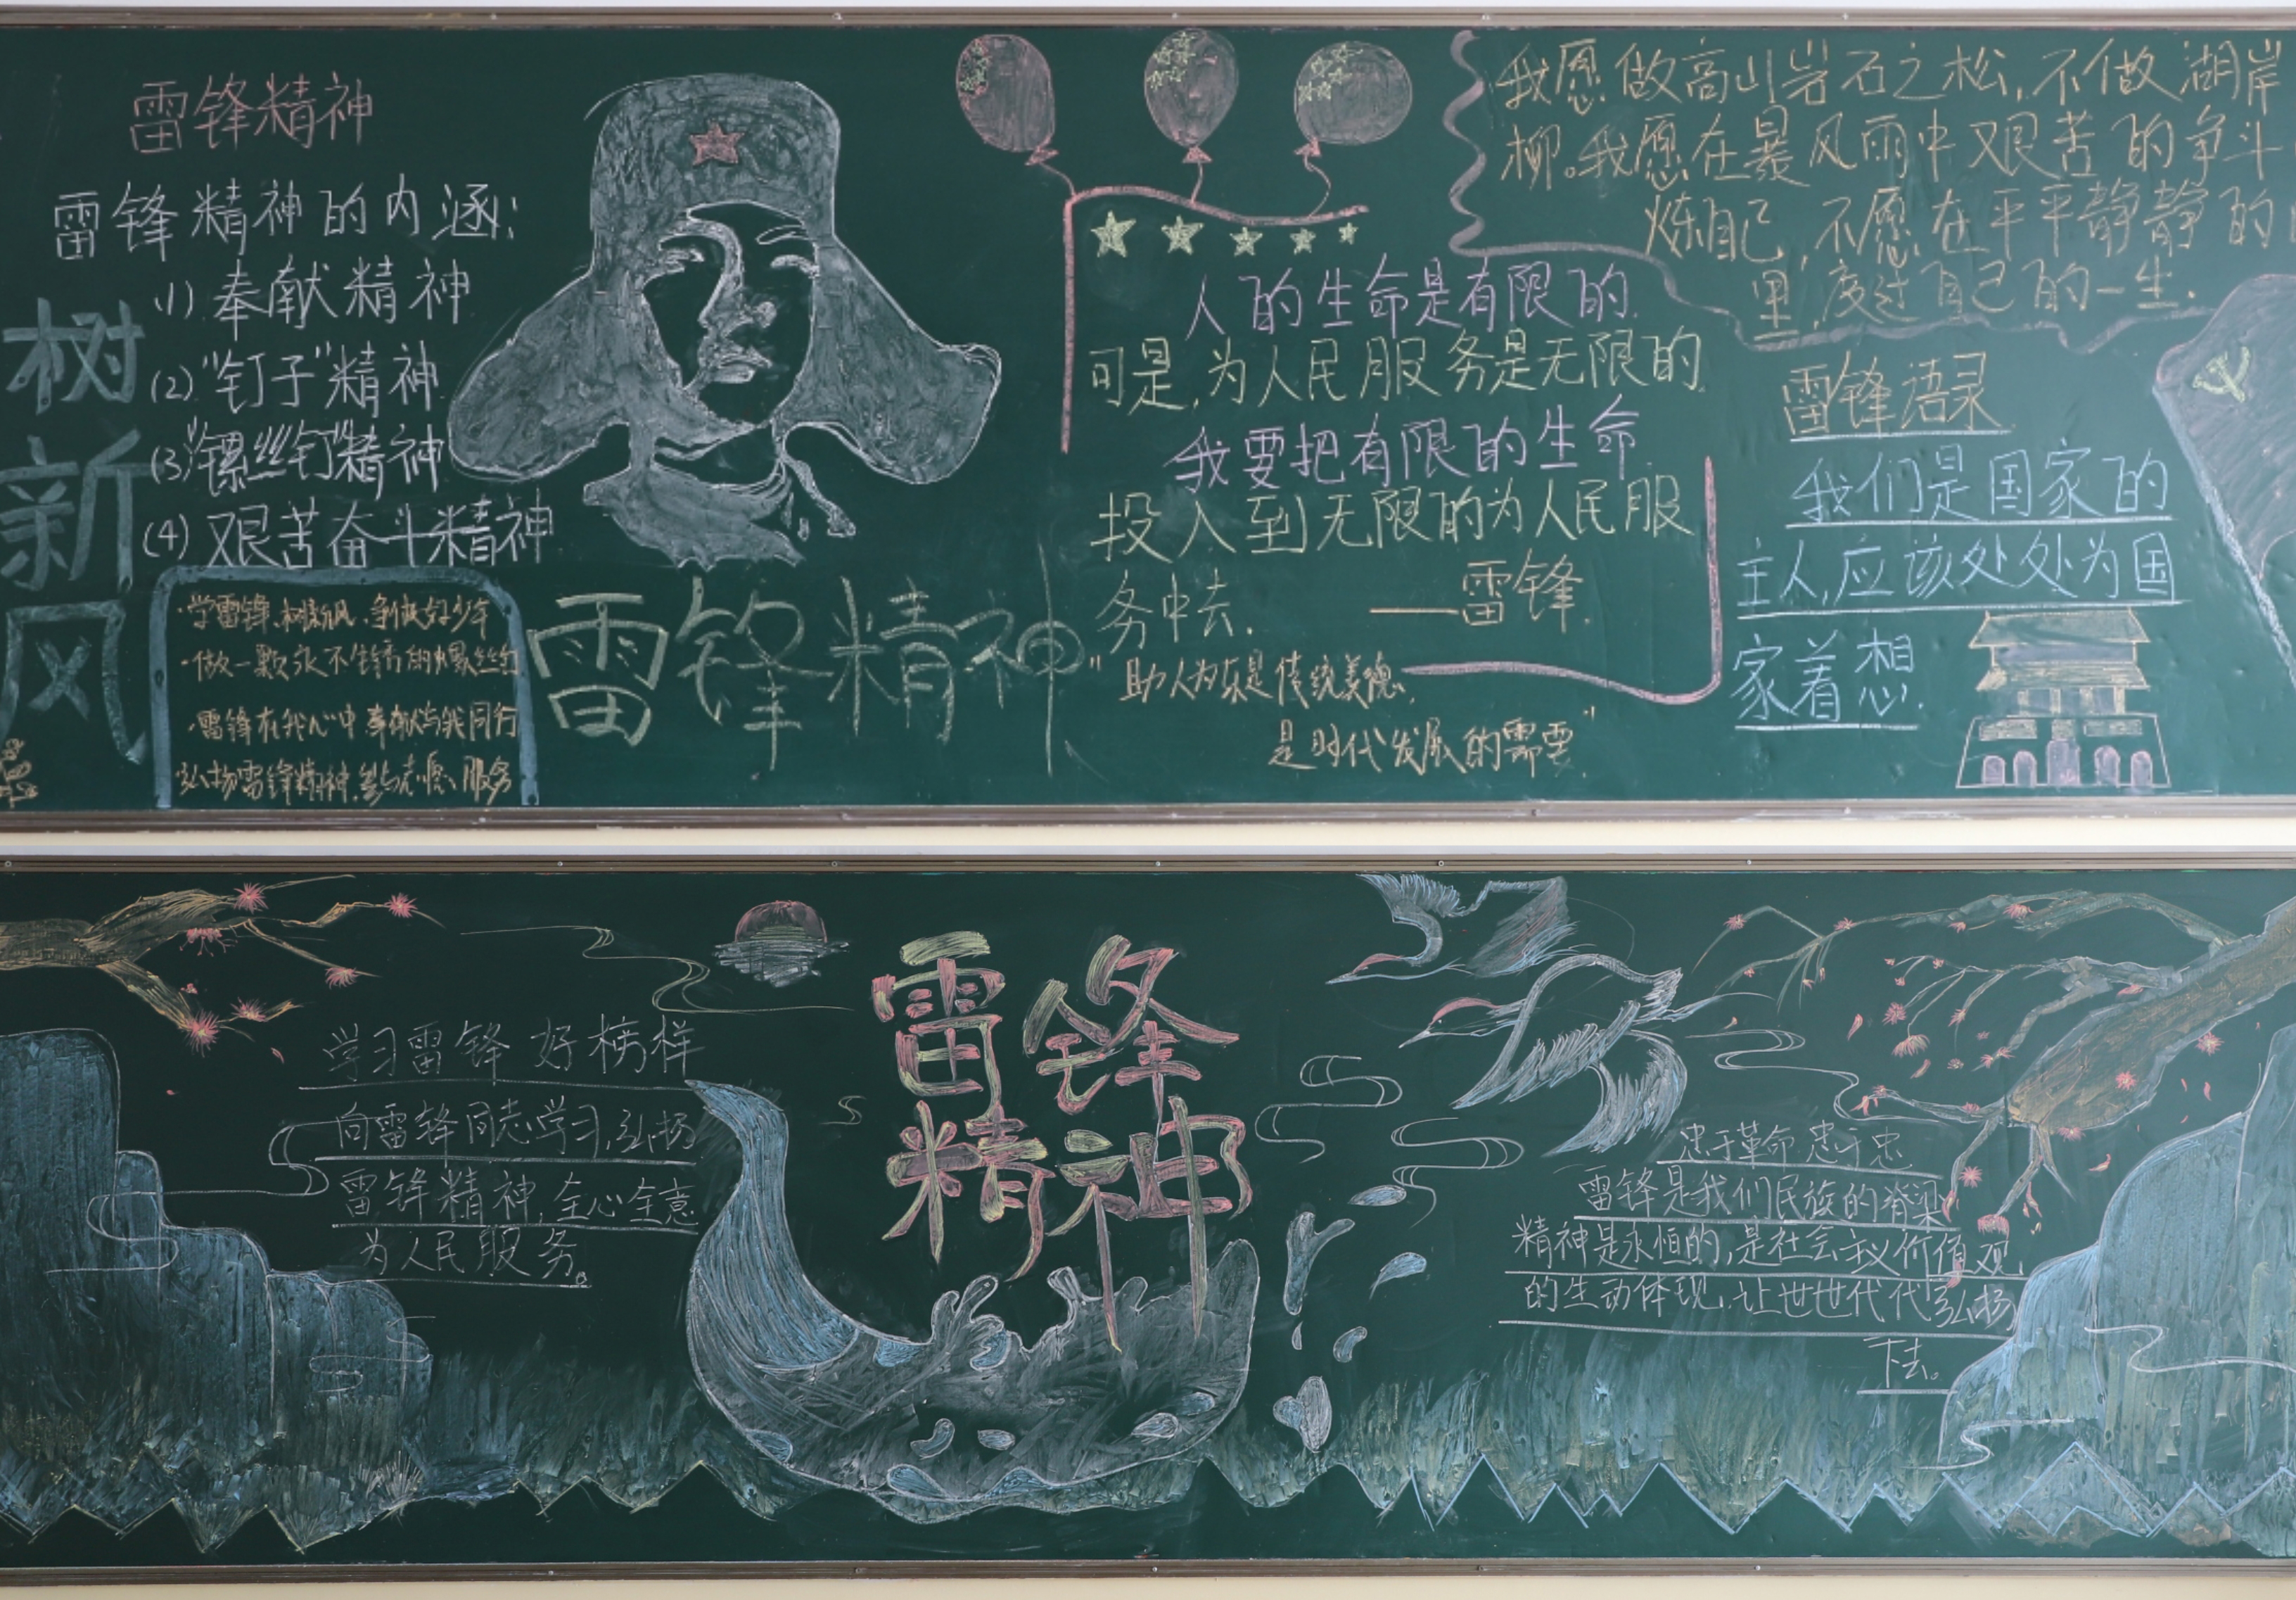 雷锋精神
雷锋精神的内涵:
(1)奉献精神
(2)"钉子"精神
(3)"镙丝钉"精神
(4)艰苦奋斗精神
树
新
风
·学雷锋、树新风、争做好少年
·做一颗永不锈的螺丝钉
·雷锋在我心中 奉献与我同行
弘扬雷锋精神,参与志愿服务
雷锋精神
人的生命是有限的
可是,为人民服务是无限的
我要把有限的生命
投入到无限的为人民服
务中去.
——雷锋.
"助人为乐是传统美德,
是时代发展的需要"
我愿做高山岩石之松,不做湖岸
柳。我愿在暴风雨中艰苦的争斗
炼自己,不愿在平平静静的
里,度过自己的一生.
雷锋语录
我们是国家的
主人,应该处处为国
家着想.
雷锋
精神
学习雷锋好榜样
向雷锋同志学习,弘扬
雷锋精神,全心全意
为人民服务。
忠于革命 忠于忠
雷锋是我们民族的脊梁
精神是永恒的,是社会主义价值观
的生动体现,让世世代代弘扬
下去。